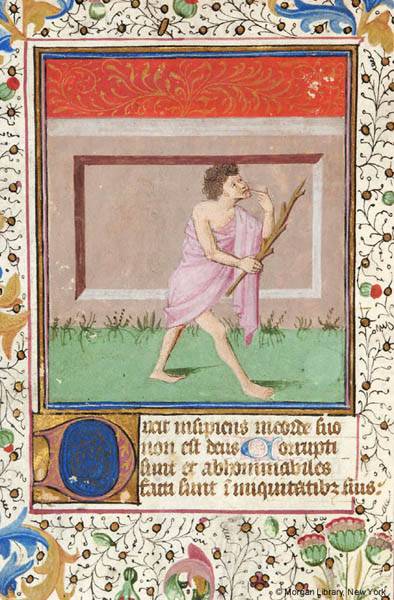 Dixit insipiens in corde suo
non est deus Corrupti
sunt et abhominabiles
facti sunt i iniquitatibz suis:
© Morgan Library, New York